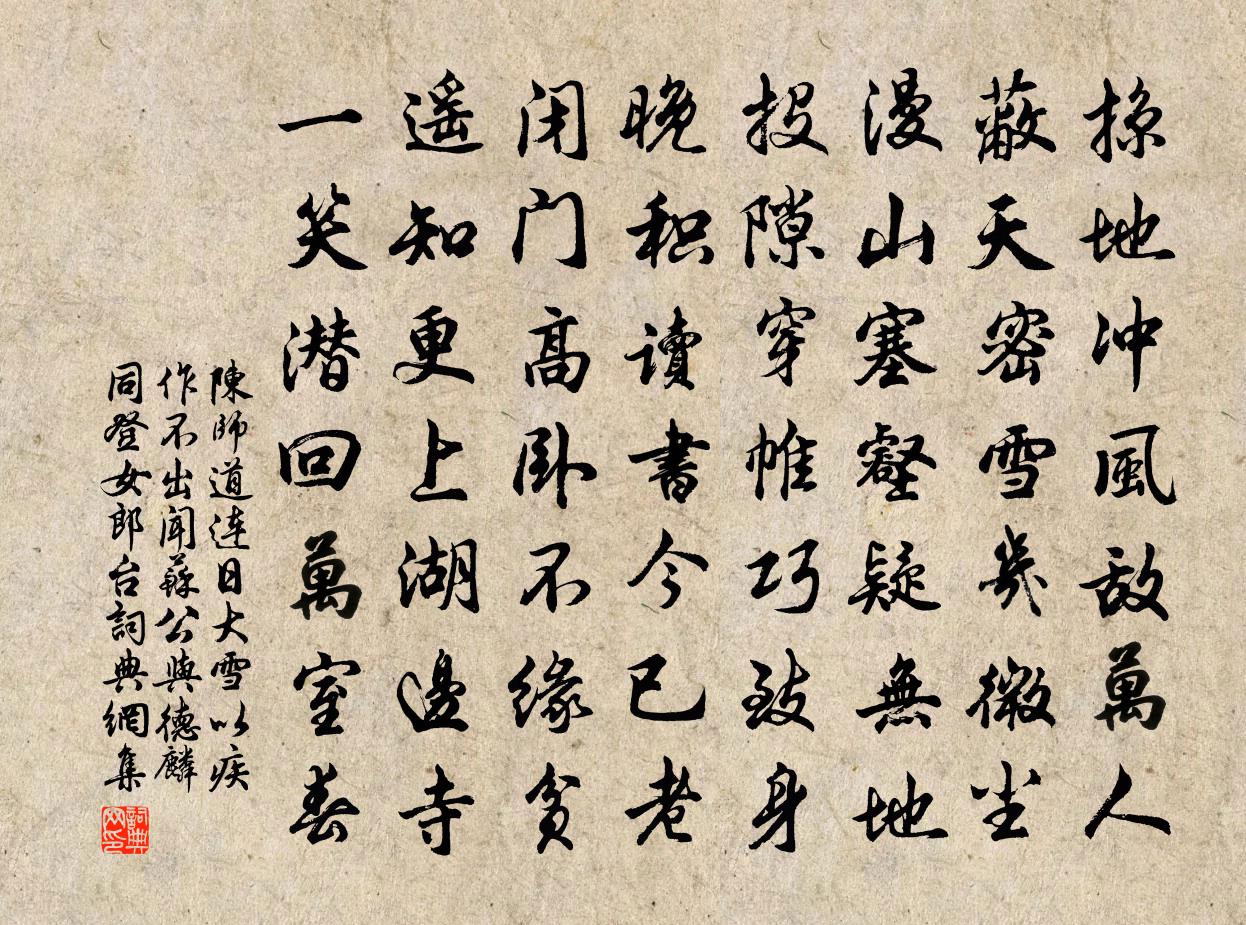 掠地冲風敌萬人
蔽天密雪幾微尘
漫山塞壑疑無地
投隙穿帷巧致身
晚积读書今已老
闭门高卧不缘贫
遥知更上湖邊寺
一笑潜回萬室春
陳師道连日大雪以疾
作不出闻蘇公與德麟
同登女郎台詞典網集
詞典網印